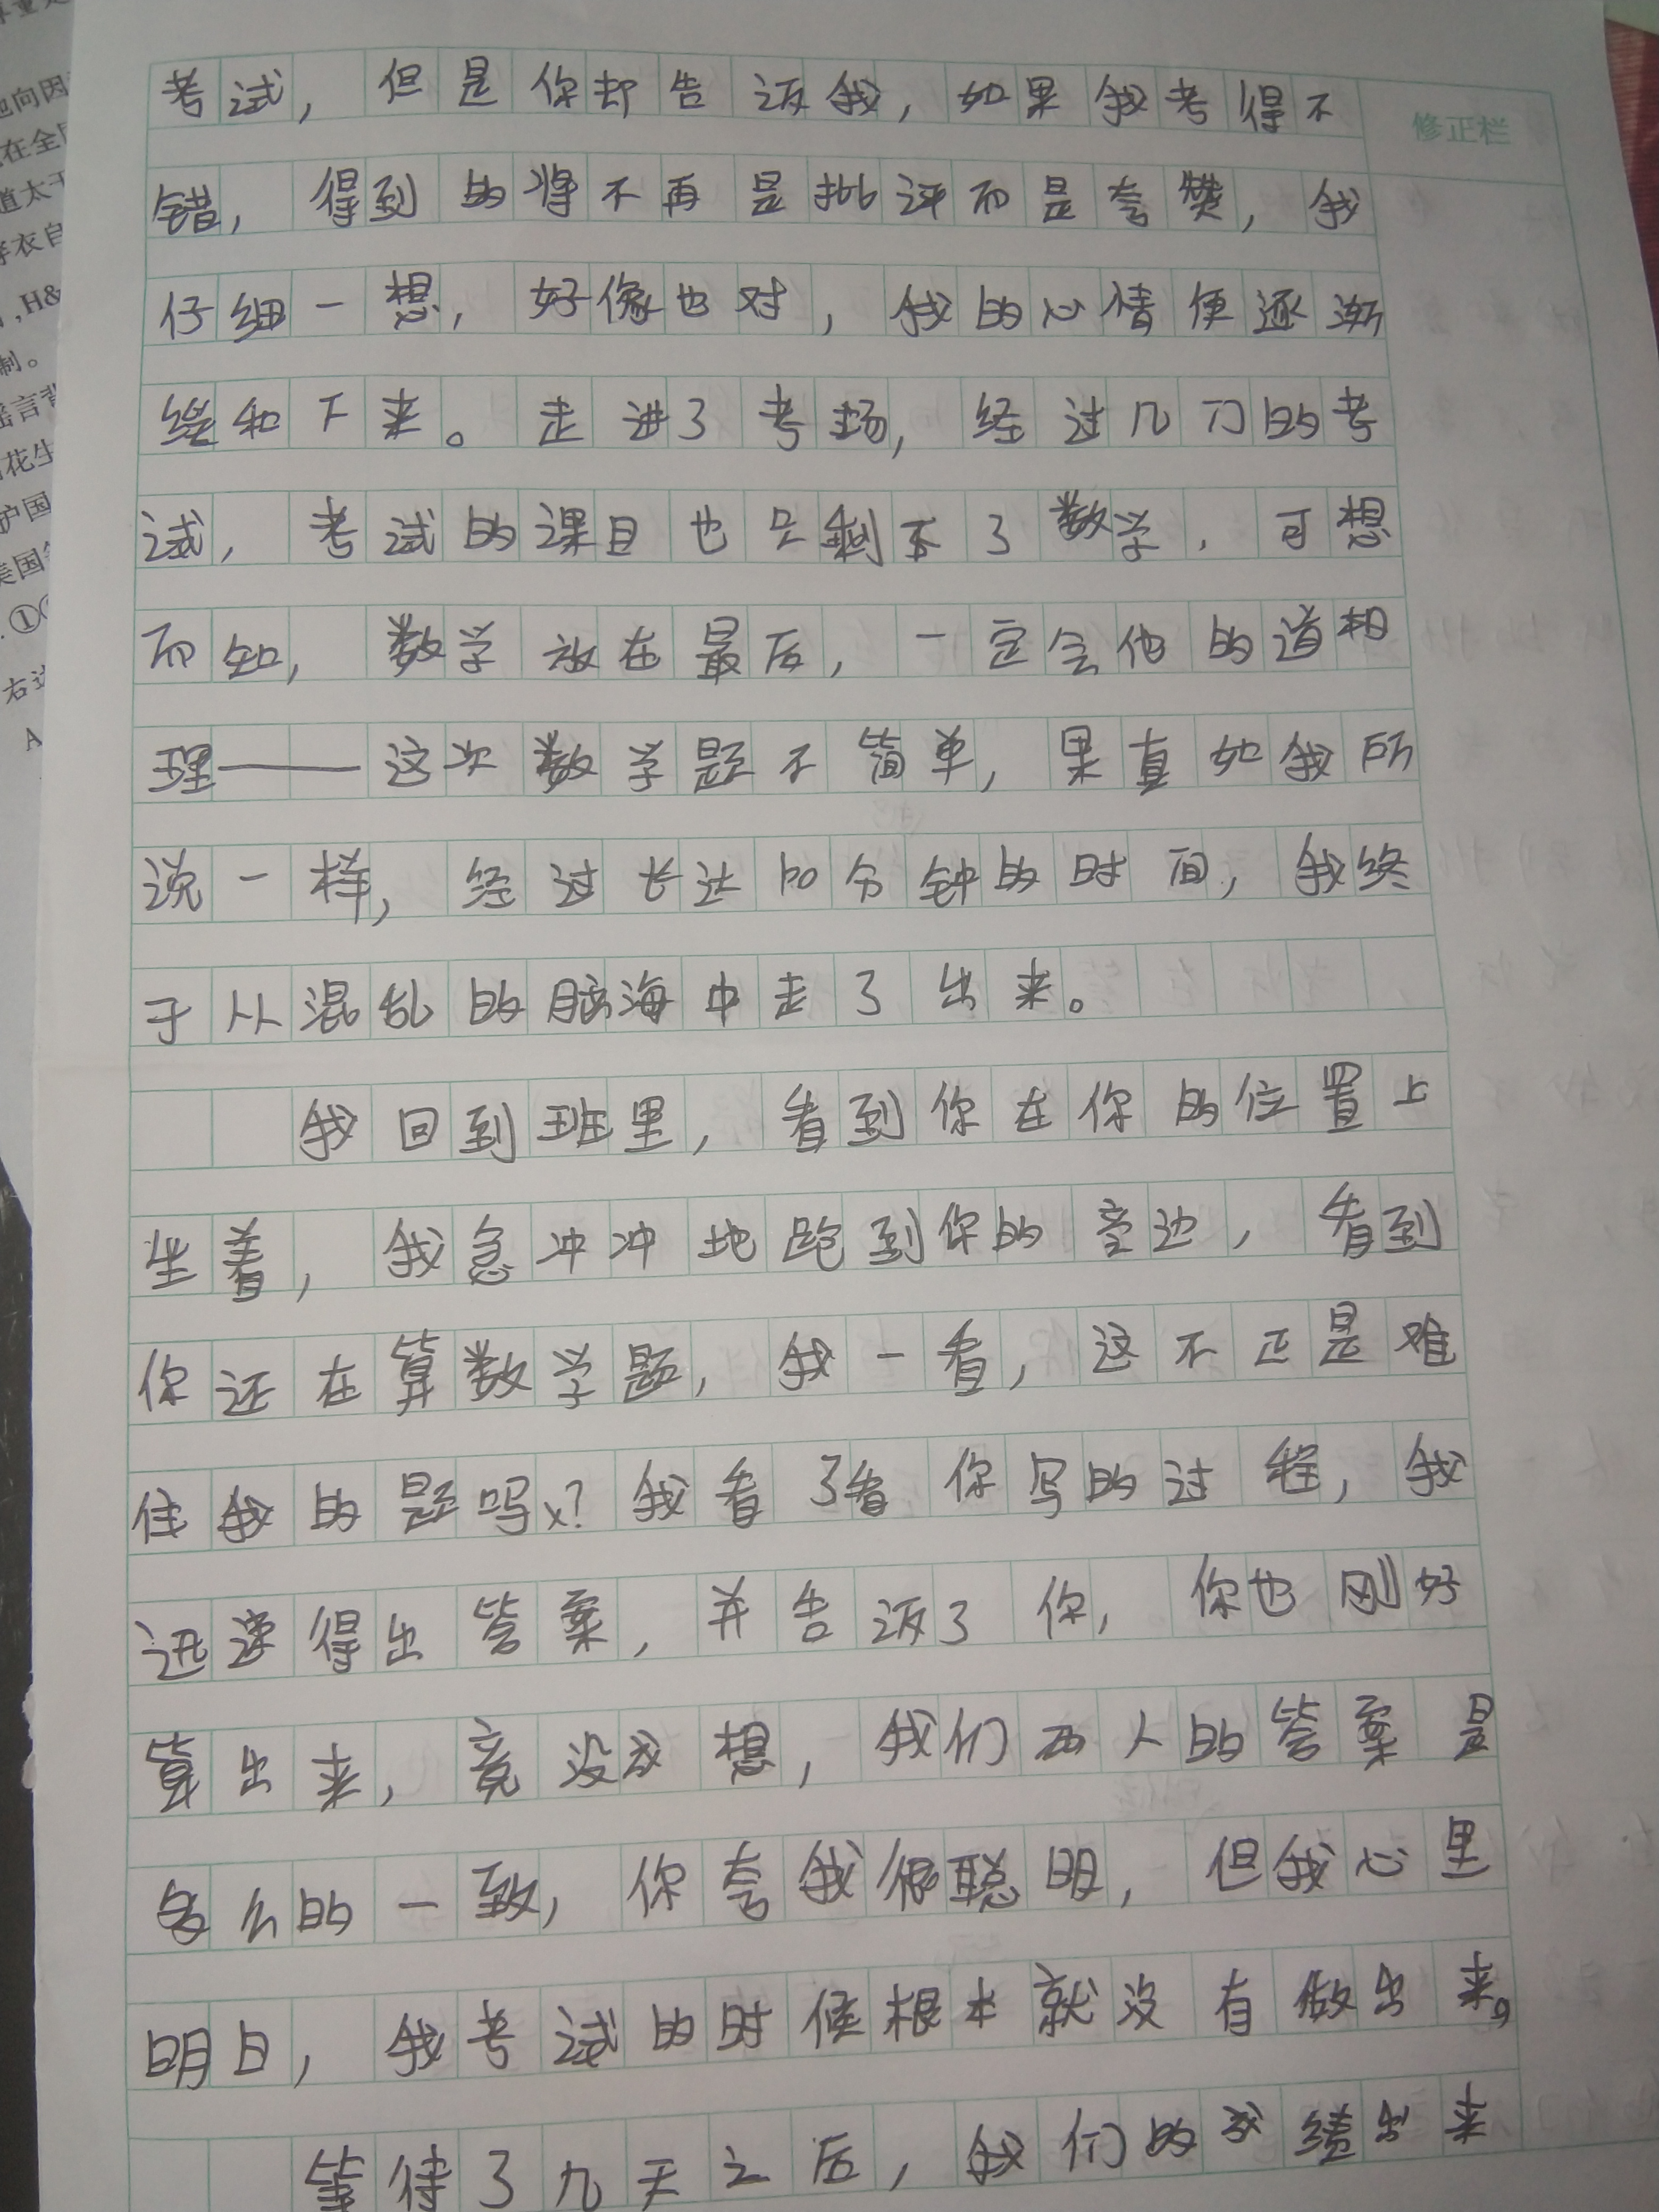 考试，但是你却告诉我，如果我考得不
修正栏
错，得到的将不再是批评而是夸赞，我
仔细一想，好像也对，我的心情便逐渐
缓和下来。走进了考场，经过几门的考
试，考试的课目也只剩下了数学，可想
而知，数学放在最后，一定会他的道相
理——这次数学题不简单，果真如我所
说一样，经过长达100分钟的时间，我终
于从混乱的脑海中走了出来。
我回到班里，看到你在你的位置上
坐着，我急冲冲地跑到你的旁边，看到
你还在算数学题，我一看，这不正是难
住我的题吗？我看了看你写的过程，我
迅速得出答案，并告诉了你，你也刚好
算出来，竟没成想，我们两人的答案是
多么的一致，你夸我很聪明，但我心里
明白，我考试的时候根本就没有做出来。
等待了几天之后，我们的成绩出来
地向因
在全
道太
衣自
,H&
制。
谣言背
花生
护国
美国
.①
右
A